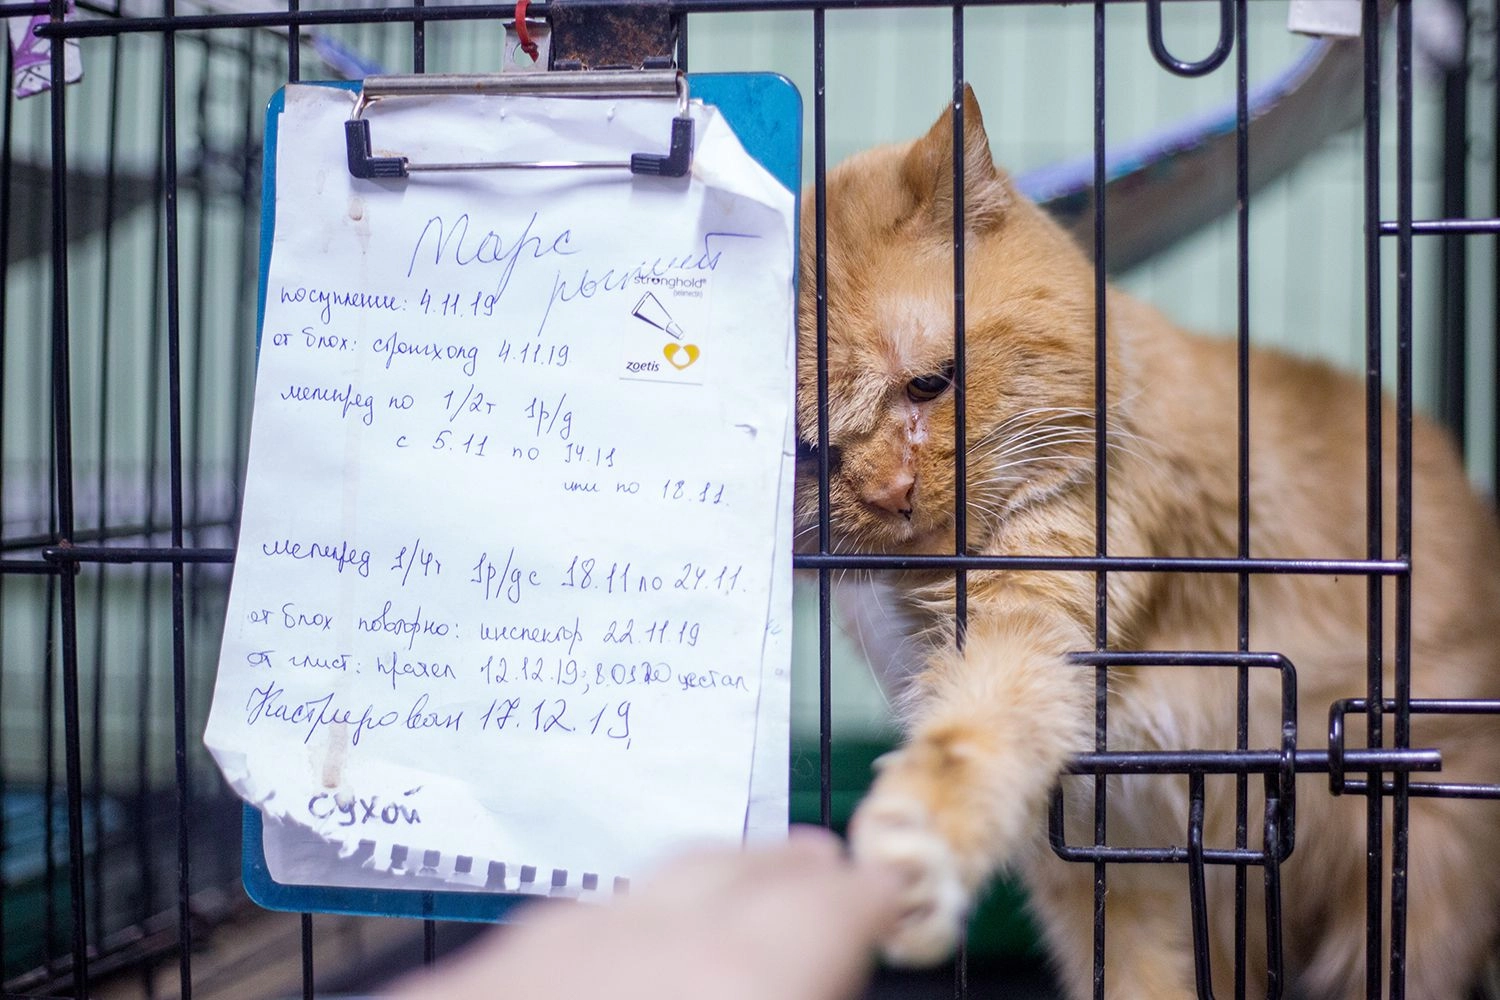 Марс
рыжий
stronghold®
(selamectin)
zoetis
поступление: 4.11.19
от блох: стронгхолд 4.11.19
метипред по 1/2т 1р/д
с 5.11 по 14.11
или по 18.11.
метипред 1/4т 1р/д с 18.11 по 24.11.
от блох повторно: инспектор 22.11.19
от глист: празел 12.12.19; цестал
Кастрирован 17.12.19,
сухой